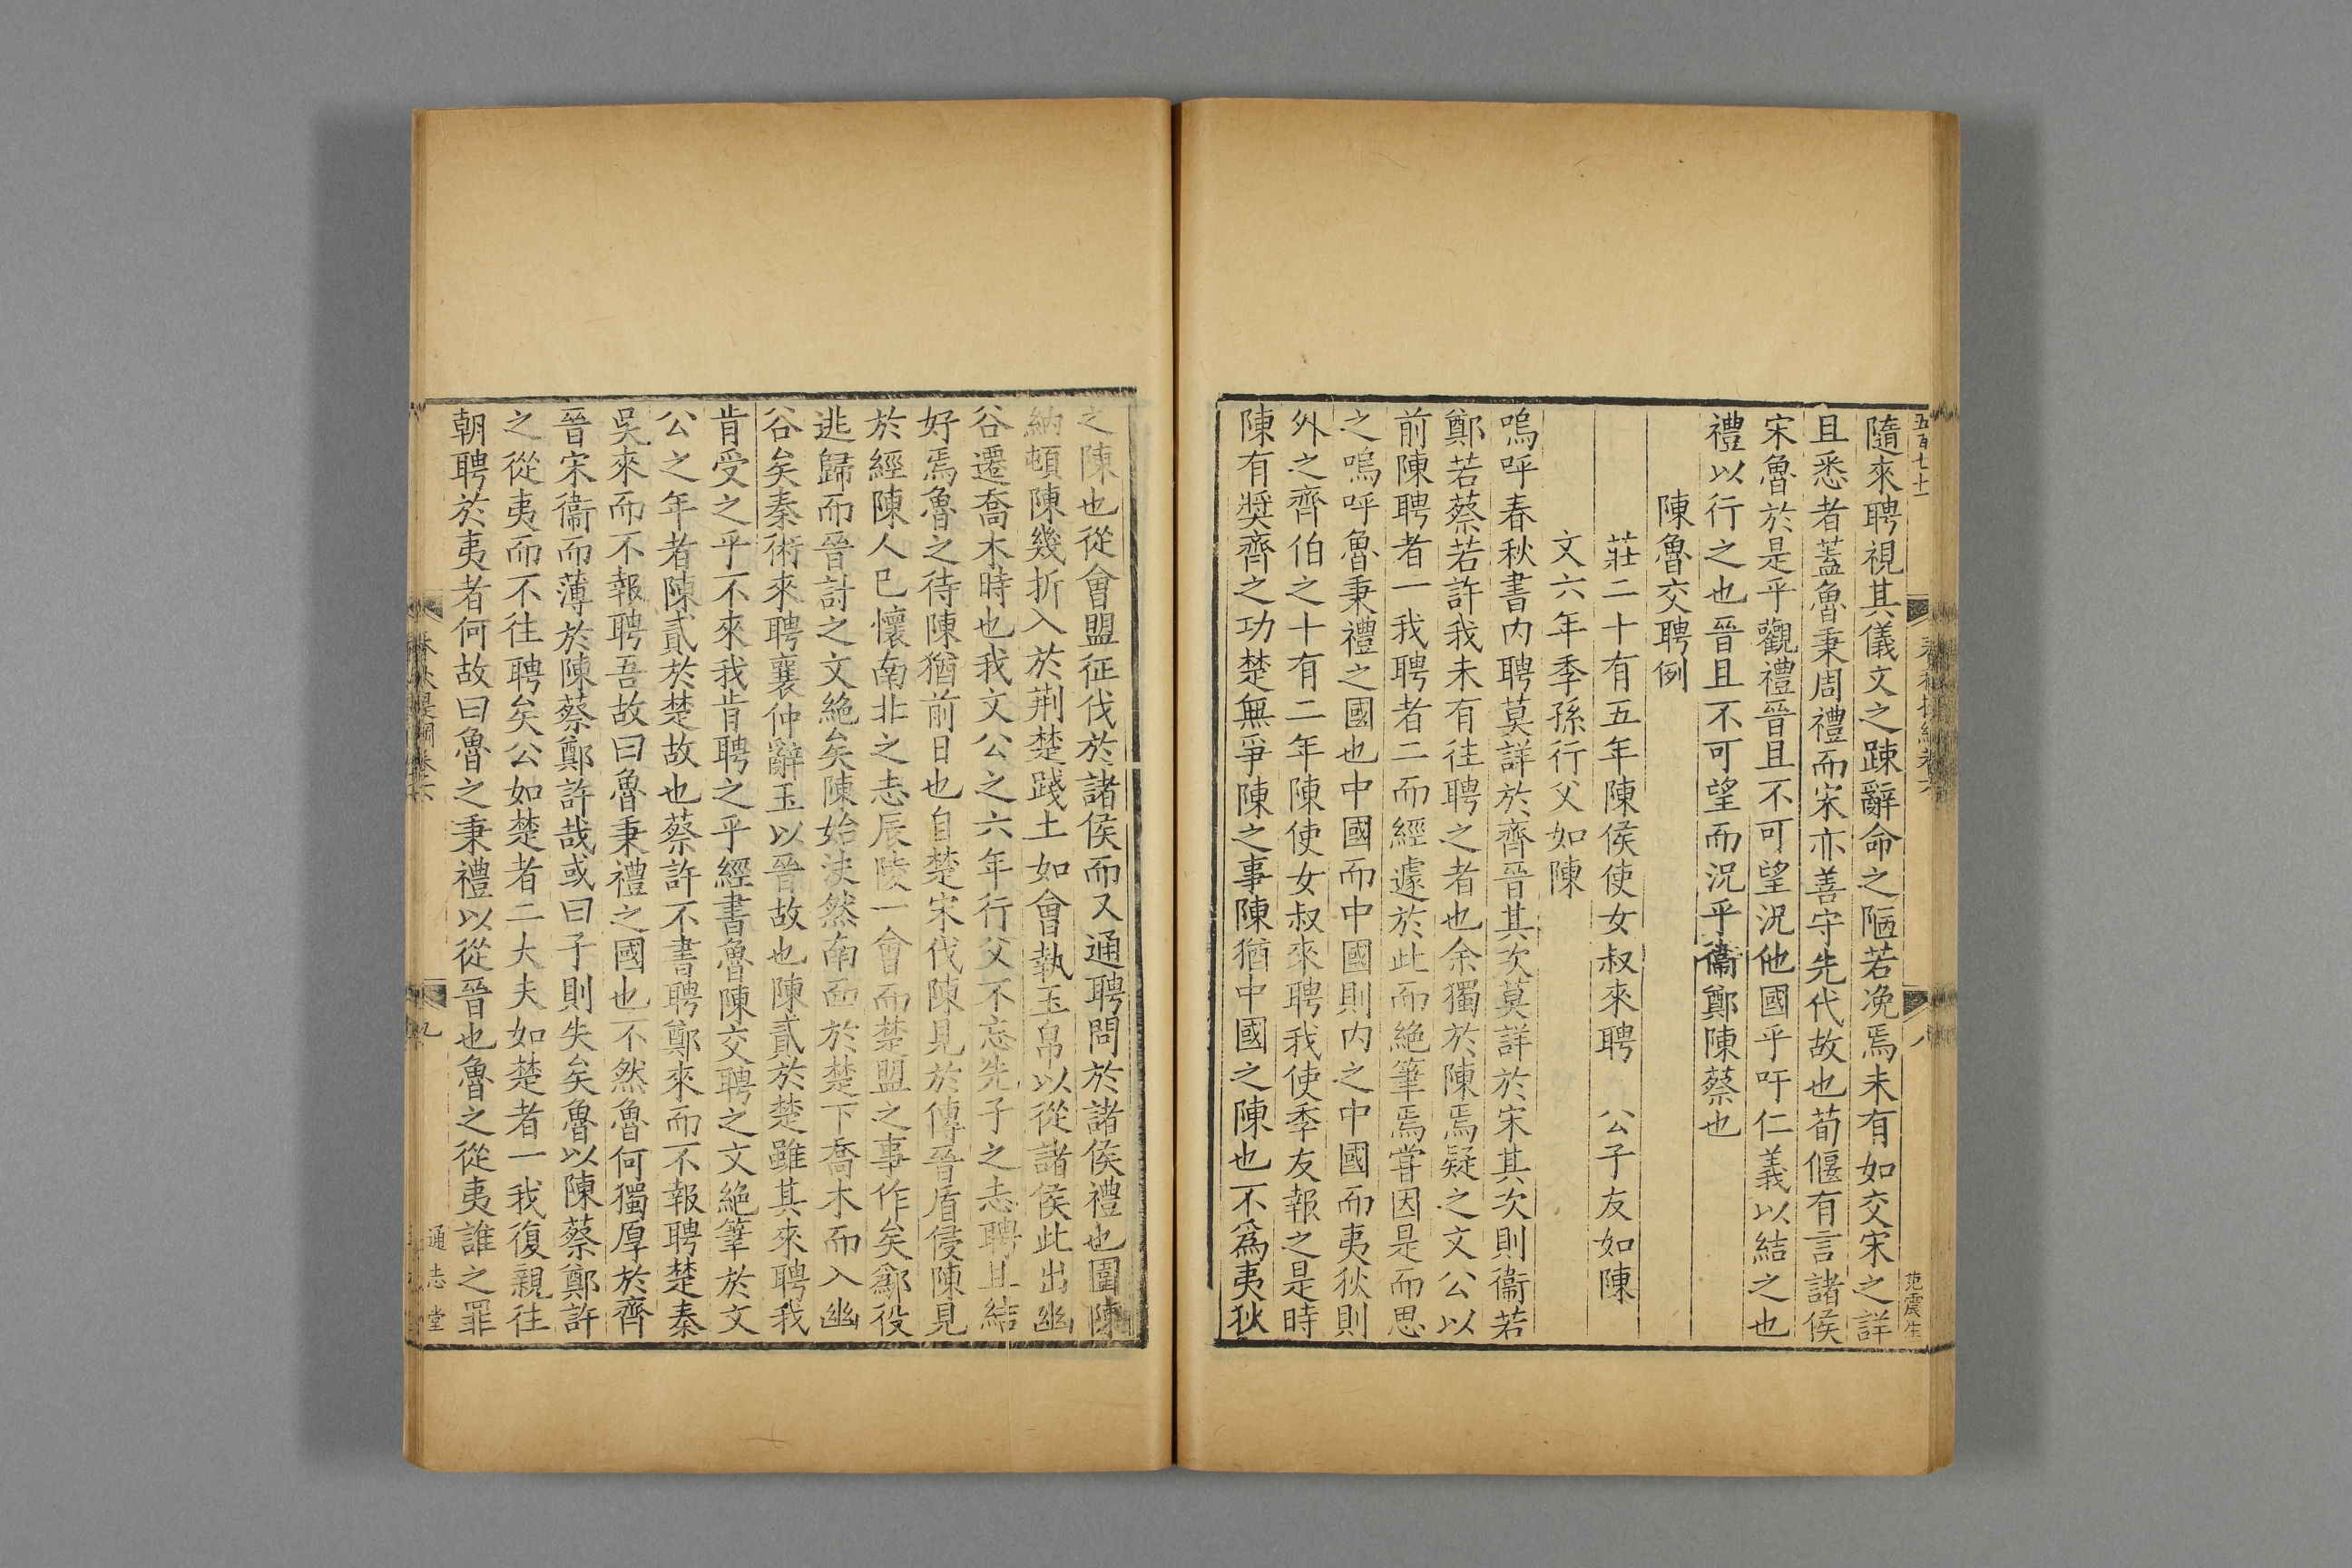 五百七十一
隨來聘視其儀文之踈辭命之陋若浼焉未有如交宋之詳
且悉者蓋魯秉周禮而宋亦善守先代故也荀偃有言諸侯
宋魯於是乎觀禮晉且不可望況他國乎吁仁義以結之也
禮以行之也晉且不可望而況乎衞鄭陳蔡也
陳魯交聘例
莊二十有五年陳侯使女叔來聘 公子友如陳
文六年季孫行父如陳
嗚呼春秋書内聘莫詳於齊晉其次莫詳於宋其次則衞若
鄭若蔡若許我未有往聘之者也余獨於陳焉疑之文公以
前陳聘者一我聘者二而經遽於此而絶筆焉嘗因是而思
之嗚呼魯秉禮之國也中國而中國則内之中國而夷狄則
外之齊伯之十有二年陳使女叔來聘我使季友報之是時
陳有奬齊之功楚無爭陳之事陳猶中國之陳也不爲夷狄
范震生
八
之陳也從會盟征伐於諸侯而又通聘問於諸侯禮也圍陳
納頓陳幾折入於荆楚踐土如會執玉帛以從諸侯此出幽
谷遷喬木時也我文公之六年行父不忘先子之志聘且結
好焉魯之待陳猶前日也自楚宋伐陳見於傳晉盾侵陳見
於經陳人已懷南北之志辰陵一會而楚盟之事作矣鄬役
逃歸而晉討之文絶矣陳始決然南面於楚下喬木而入幽
谷矣秦術來聘襄仲辭玉以晉故也陳貳於楚雖其來聘我
肯受之乎不來我肯聘之乎經書魯陳交聘之文絶筆於文
公之年者陳貳於楚故也蔡許不書聘鄭來而不報聘楚秦
吳來而不報聘吾故曰魯秉禮之國也不然魯何獨厚於齊
晉宋衞而薄於陳蔡鄭許哉或曰子則失矣魯以陳蔡鄭許
之從夷而不往聘矣公如楚者二大夫如楚者一我復親往
朝聘於夷者何故曰魯之秉禮以從晉也魯之從夷誰之罪
春秋提綱卷六
九
通志堂